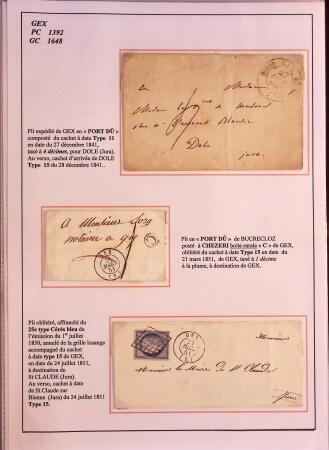 GEX
PC 1392
GC 1648
Pli expédié de GEX en « PORT DÛ »
composté du cachet à date Type 11
en date du 27 décembre 1841,
taxé à 4 décimes, pour DOLE (Jura).
Au verso, cachet d'arrivée de DOLE
Type 15 du 28 décembre 1841..
Madame
Dole
Jura.
Pli en « PORT DÛ » de BUCRECLOZ
posté à CHEZERI boîte rurale « C » de GEX,
oblitéré du cachet à date Type 15 en date du
21 mars 1851, de GEX, taxé à 1 décime
à la plume, à destination de GEX.
A Monsieur
notaire a Gex
C
GEX
Pli oblitéré, affranchi du
25c type Cérès bleu de
l'émission du 1er juillet
1850, annulé de la grille losange
accompagné du cachet
à date type 15 de GEX,
en date du 24 juillet 1851,
à destination de
ST CLAUDE (Jura).
Au verso, cachet à date
de St Claude sur
Bienne (Jura) du 24 juillet 1851
Type 15.
GEX
Monsieur
Monsieur le Maire de St Claude
Jura